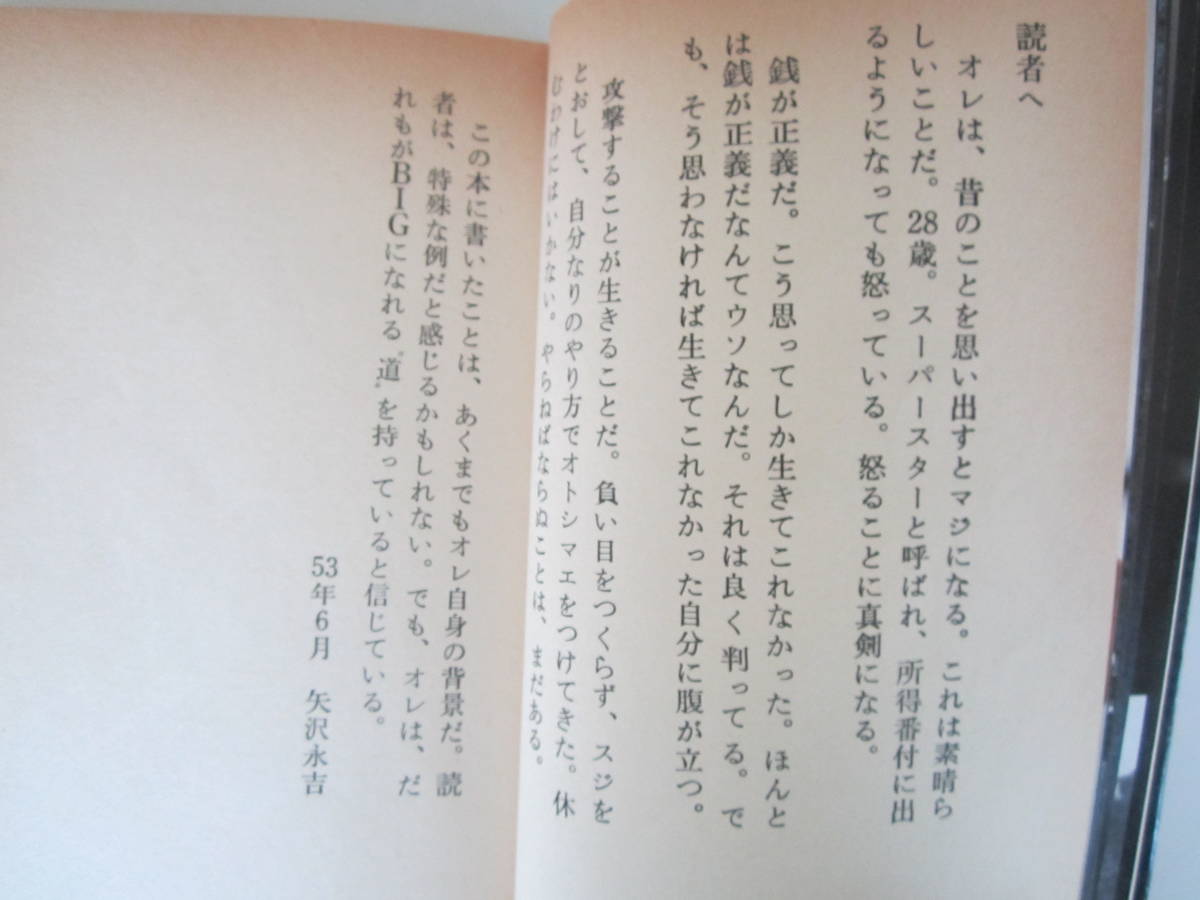 読者へ
オレは、昔のことを思い出すとマジになる。これは素晴ら
しいことだ。28歳。スーパースターと呼ばれ、所得番付に出
るようになっても怒っている。怒ることに真剣になる。
銭が正義だ。こう思ってしか生きてこれなかった。ほんと
は銭が正義だなんてウソなんだ。それは良く判ってる。で
も、そう思わなければ生きてこれなかった自分に腹が立つ。
攻撃することが生きることだ。負い目をつくらず、スジを
とおして、自分なりのやり方でオトシマエをつけてきた。休
むわけにはいかない。やらねばならぬことは、まだある。
この本に書いたことは、あくまでもオレ自身の背景だ。読
者は、特殊な例だと感じるかもしれない。でも、オレは、だ
れもがBIGになれる〝道〟を持っていると信じている。
53年6月　矢沢永吉